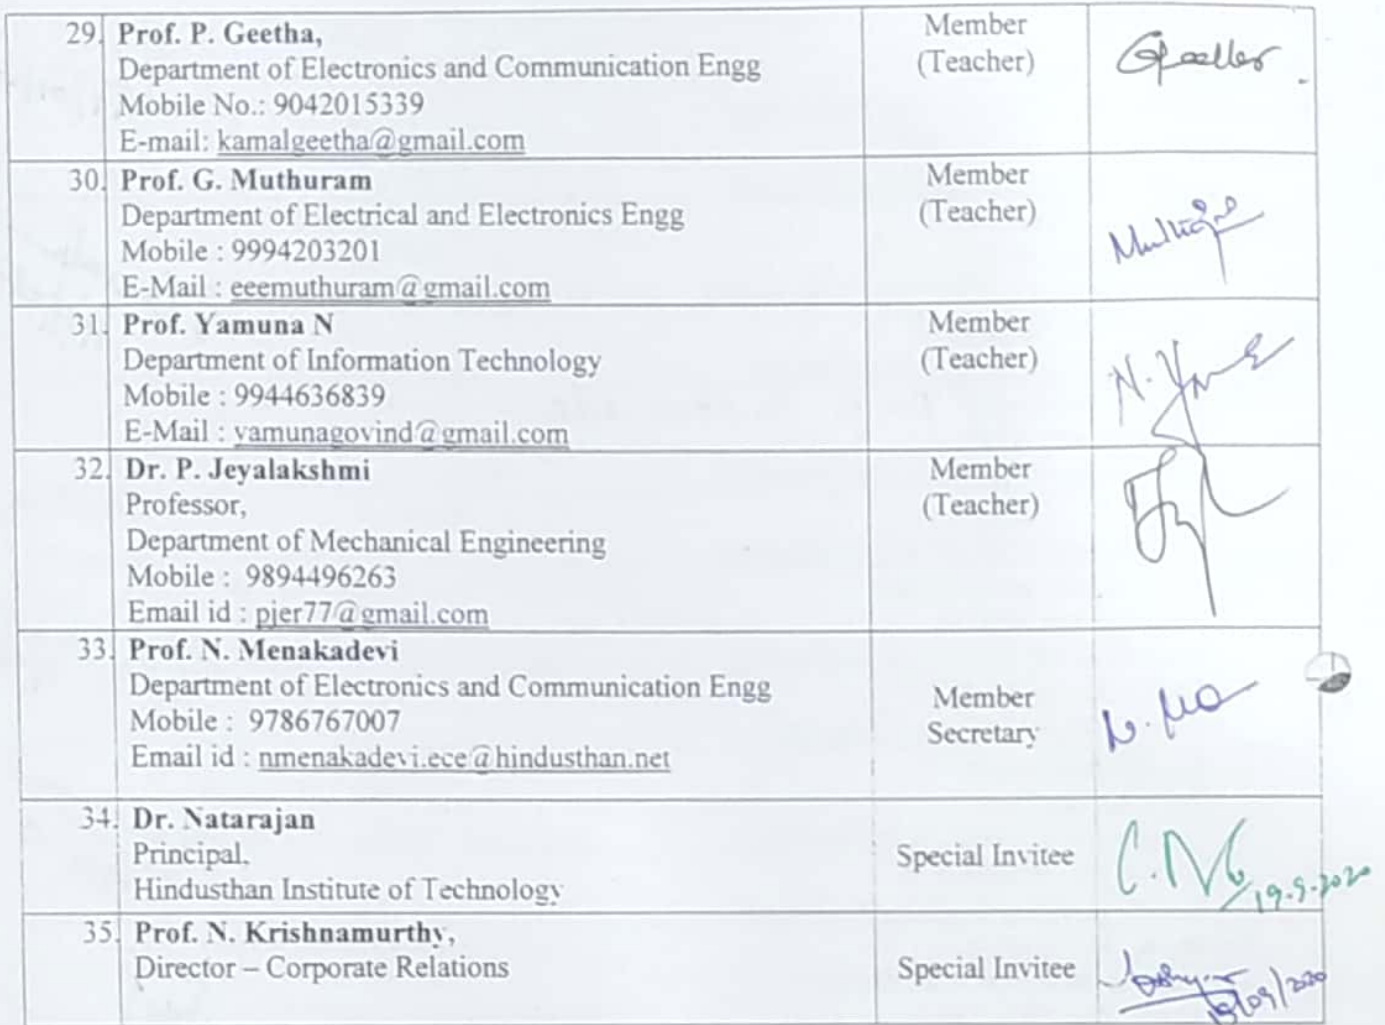 29. Prof. P. Geetha,
Department of Electronics and Communication Engg
Mobile No.: 9042015339
E-mail: kamalgeetha@gmail.com
Member
(Teacher)
30. Prof. G. Muthuram
Department of Electrical and Electronics Engg
Mobile : 9994203201
E-Mail : eeemuthuram@gmail.com
Member
(Teacher)
31. Prof. Yamuna N
Department of Information Technology
Mobile : 9944636839
E-Mail : yamunagovind@gmail.com
Member
(Teacher)
N.
32. Dr. P. Jeyalakshmi
Professor,
Department of Mechanical Engineering
Mobile : 9894496263
Email id : pjer77@gmail.com
Member
(Teacher)
33. Prof. N. Menakadevi
Department of Electronics and Communication Engg
Mobile : 9786767007
Email id : nmenakadevi.ece@hindusthan.net
Member
Secretary
34. Dr. Natarajan
Principal,
Hindusthan Institute of Technology
Special Invitee
19.9.2020
35. Prof. N. Krishnamurthy,
Director – Corporate Relations
Special Invitee